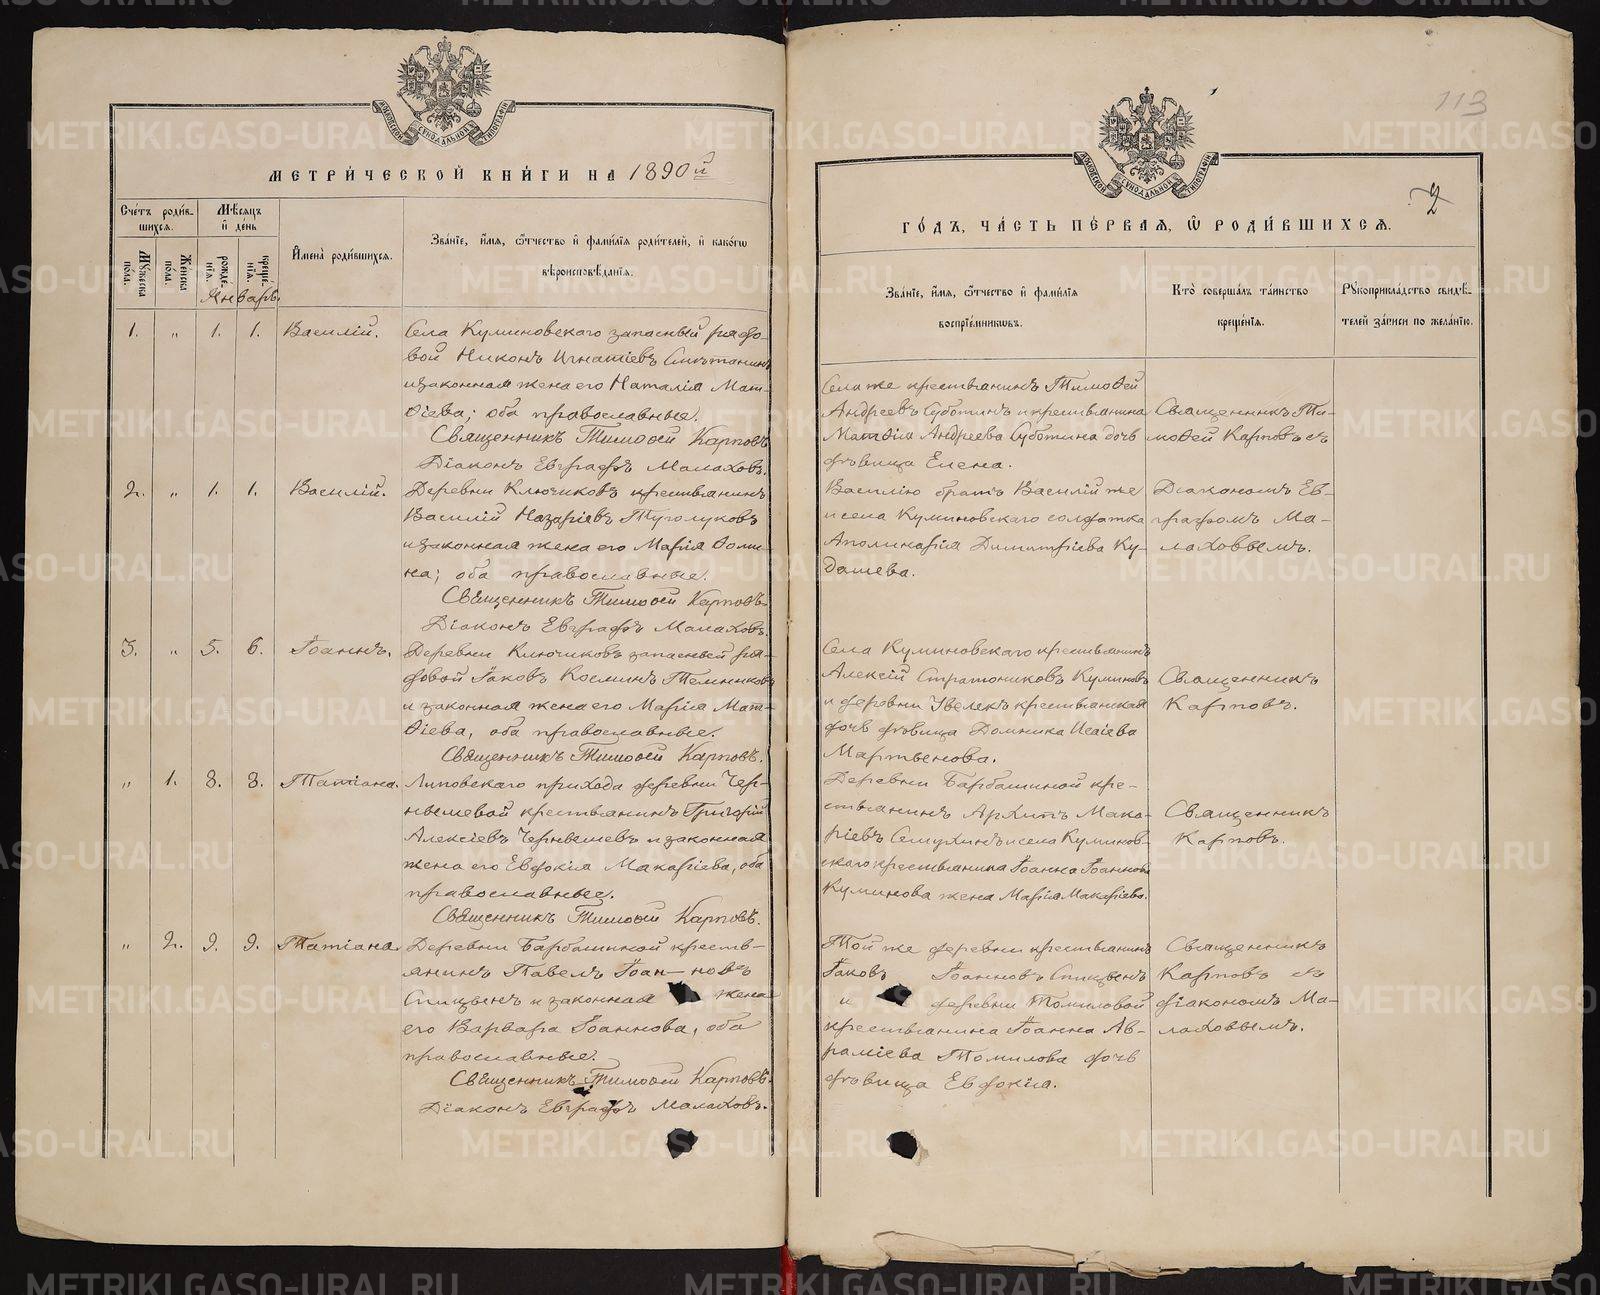 МЕТРИЧЕСКОЙ КНИГИ НА 1890й
Счетъ родившихся.
Мѣсяцъ и день
Мужеска пола.
Женска пола.
рожденія.
крещенія.
Имена родившихся.
Званіе, имя, отчество и фамилія родителей, и какого
вѣроисповѣданія.
Январь.
1. „ 1. 1. Василій.
Села Куминовскаго запасный рядо-
вой Никонъ Игнатіевъ
и законная жена его Наталія Мат-
ѳіева; оба православные.
Священникъ Тимоѳей Карповъ
Діаконъ Евграфъ Малаховъ.
2. „ 1. 1. Василій.
Деревни Ключиковъ крестьянинъ
Василій Назаріевъ Туголуковъ
и законная жена его Марія Ѳоми-
на; оба православные.
Священникъ Тимоѳей Карповъ
Діаконъ Евграфъ Малаховъ.
3. „ 5. 6. Іоаннъ.
Деревни Ключиковъ запасный ря-
довой Іаковъ Косминъ Темниковъ
и законная жена его Марія Мат-
ѳіева, оба православные.
Священникъ Тимоѳей Карповъ.
„ 1. 8. 8. Татіана.
Липовскаго прихода деревни Чер-
нышевой крестьянинъ Григорій
Алексіевъ Чернышевъ и законная
жена его Евдокія Макаріева, оба
православные.
Священникъ Тимоѳей Карповъ.
„ 2. 9. 9. Татіана.
Деревни Барбашиной кресть-
янинъ Павелъ Іоан-новъ
Спицынъ и законная жена
его Варвара Іоаннова, оба
православные.
Священникъ Тимоѳей Карповъ.
Діаконъ Евграфъ Малаховъ.
113
2
ГОДЪ, ЧАСТЬ ПЕРВАЯ, Ѿ РОДИВШИХСЯ.
Званіе, имя, отчество и фамилія
воспріемниковъ.
Кто совершалъ таинство
крещенія.
Рукоприкладство свидѣ-
телей записи по желанію.
Села же крестьянинъ Тимоѳей
Андреевъ Субботинъ и крестьянина
Матѳія Андреева Субботина дочь
дѣвица Елена.
Священникъ Ти-
моѳей Карповъ съ
Василію братъ Василій же
и села Куминовскаго солдатка
Аполинарія Димитріева Ку-
дашева.
Діакономъ Ев-
графомъ Ма-
лаховымъ.
Села Куминовскаго крестьянинъ
Алексій Стратониковъ Куминовъ
и деревни Увелекъ крестьянская
дочь дѣвица Домника Исаіева
Мартьянова.
Священникъ
Карповъ.
Деревни Барбашиной кре-
стьянинъ Архипъ Мака-
ріевъ Семухинъ и села Куминов-
скаго крестьянина Іоанна Іоаннова
Куминова жена Марія Макаріева.
Священникъ
Карповъ.
Той же деревни крестьянинъ
Іаковъ Іоанновъ Спицынъ
и деревни Томиловой
крестьянина Іоанна Ав-
раміева Томилова дочь
дѣвица Евдокія.
Священникъ
Карповъ съ
діакономъ Ма-
лаховымъ.
METRIKI.GASO-URAL.RU